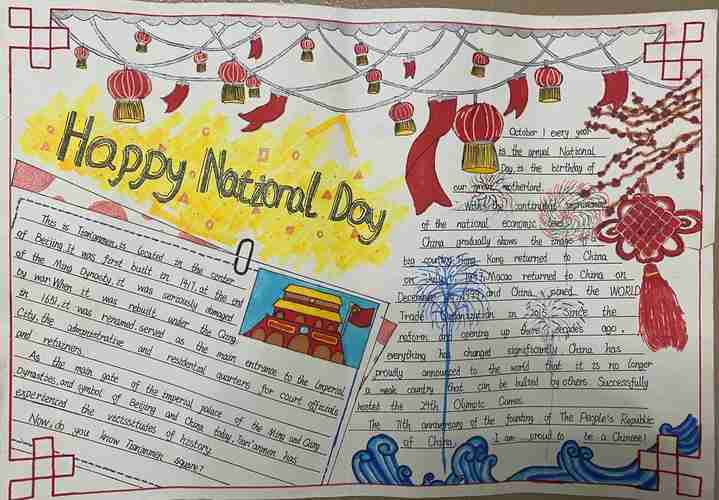 Happy National Day
This is Tian'anmen.is located in the center
of Beijing.It was first built in 1417.at the end
of the Ming Dynasty, it was seriously damaged
by war.When it was rebuilt under the Qing
in 1651,it was renamed.served as the main entrance to the Imperial
City, the administrative and residential quarters for court officials
and retainers.
As the main gate of the Imperial palace of the Ming and Qing
Dynasties,and symbol of Beijing and China today,Tian'anmen has
experienced the vicissitudes of history.
Now, do you know Tian'anmen square?
October 1 every year
is the annual National
Day, is the birthday of
our great motherland.
With the continuous improvement
of the national economic
China gradually shows the image of a
country. Hong Kong returned to China
on 1997, Macao returned to China on
December 1999 and China joined the WORLD
Trade Organization in Since the
reform and opening up three decades ago,
everything has changed significantly. China has
proudly announced to the world that it is no longer
a weak country that can be bullied by others. Successfully
hosted the 24th Olympic Games.
The 71th anniversary of the founding of The People's Republic
of China, I am proud to be a Chinese!